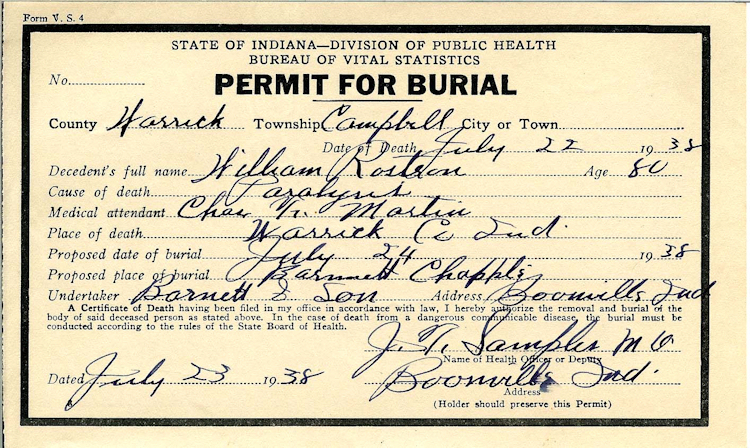 Form V. S. 4
STATE OF INDIANA—DIVISION OF PUBLIC HEALTH
BUREAU OF VITAL STATISTICS
No.
PERMIT FOR BURIAL
County Warrick Township Campbell City or Town
Date of Death July 22 1938
Decedent's full name William Rostron Age 80
Cause of death Paralysis
Medical attendant Chas Martin
Place of death Warrick Co Ind.
Proposed date of burial July 24 1938
Proposed place of burial Barnett
Undertaker Barnett & Son Address Boonville Ind
A Certificate of Death having been filed in my office in accordance with law, I hereby authorize the removal and burial of the
body of said deceased person as stated above. In the case of death from a dangerous communicable disease, the burial must be
conducted according to the rules of the State Board of Health.
J. Samples M D
Name of Health Officer or Deputy
Dated July 23 1938 Boonville Ind.
Address
(Holder should preserve this Permit)